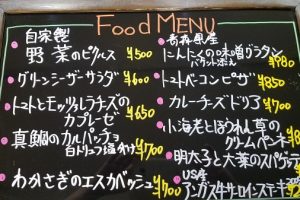 Food MENU
自家製
野菜のピクルス ¥500
グリーンシーザーサラダ ¥600
トマトとモッツァレラチーズの
カプレーゼ ¥650
真鯛のカルパッチョ
白トリュフ塩 ¥700
わかさぎのエスカベッシュ ¥700
青森県産
にんにくの味噌グラタン
¥980
トマトベーコンピザ ¥850
カレーチーズドリア ¥700
小海老とほうれん草の
クリームペンネ
明太子と大葉のスパゲッティ
US産
アンガス牛サーロインステーキ